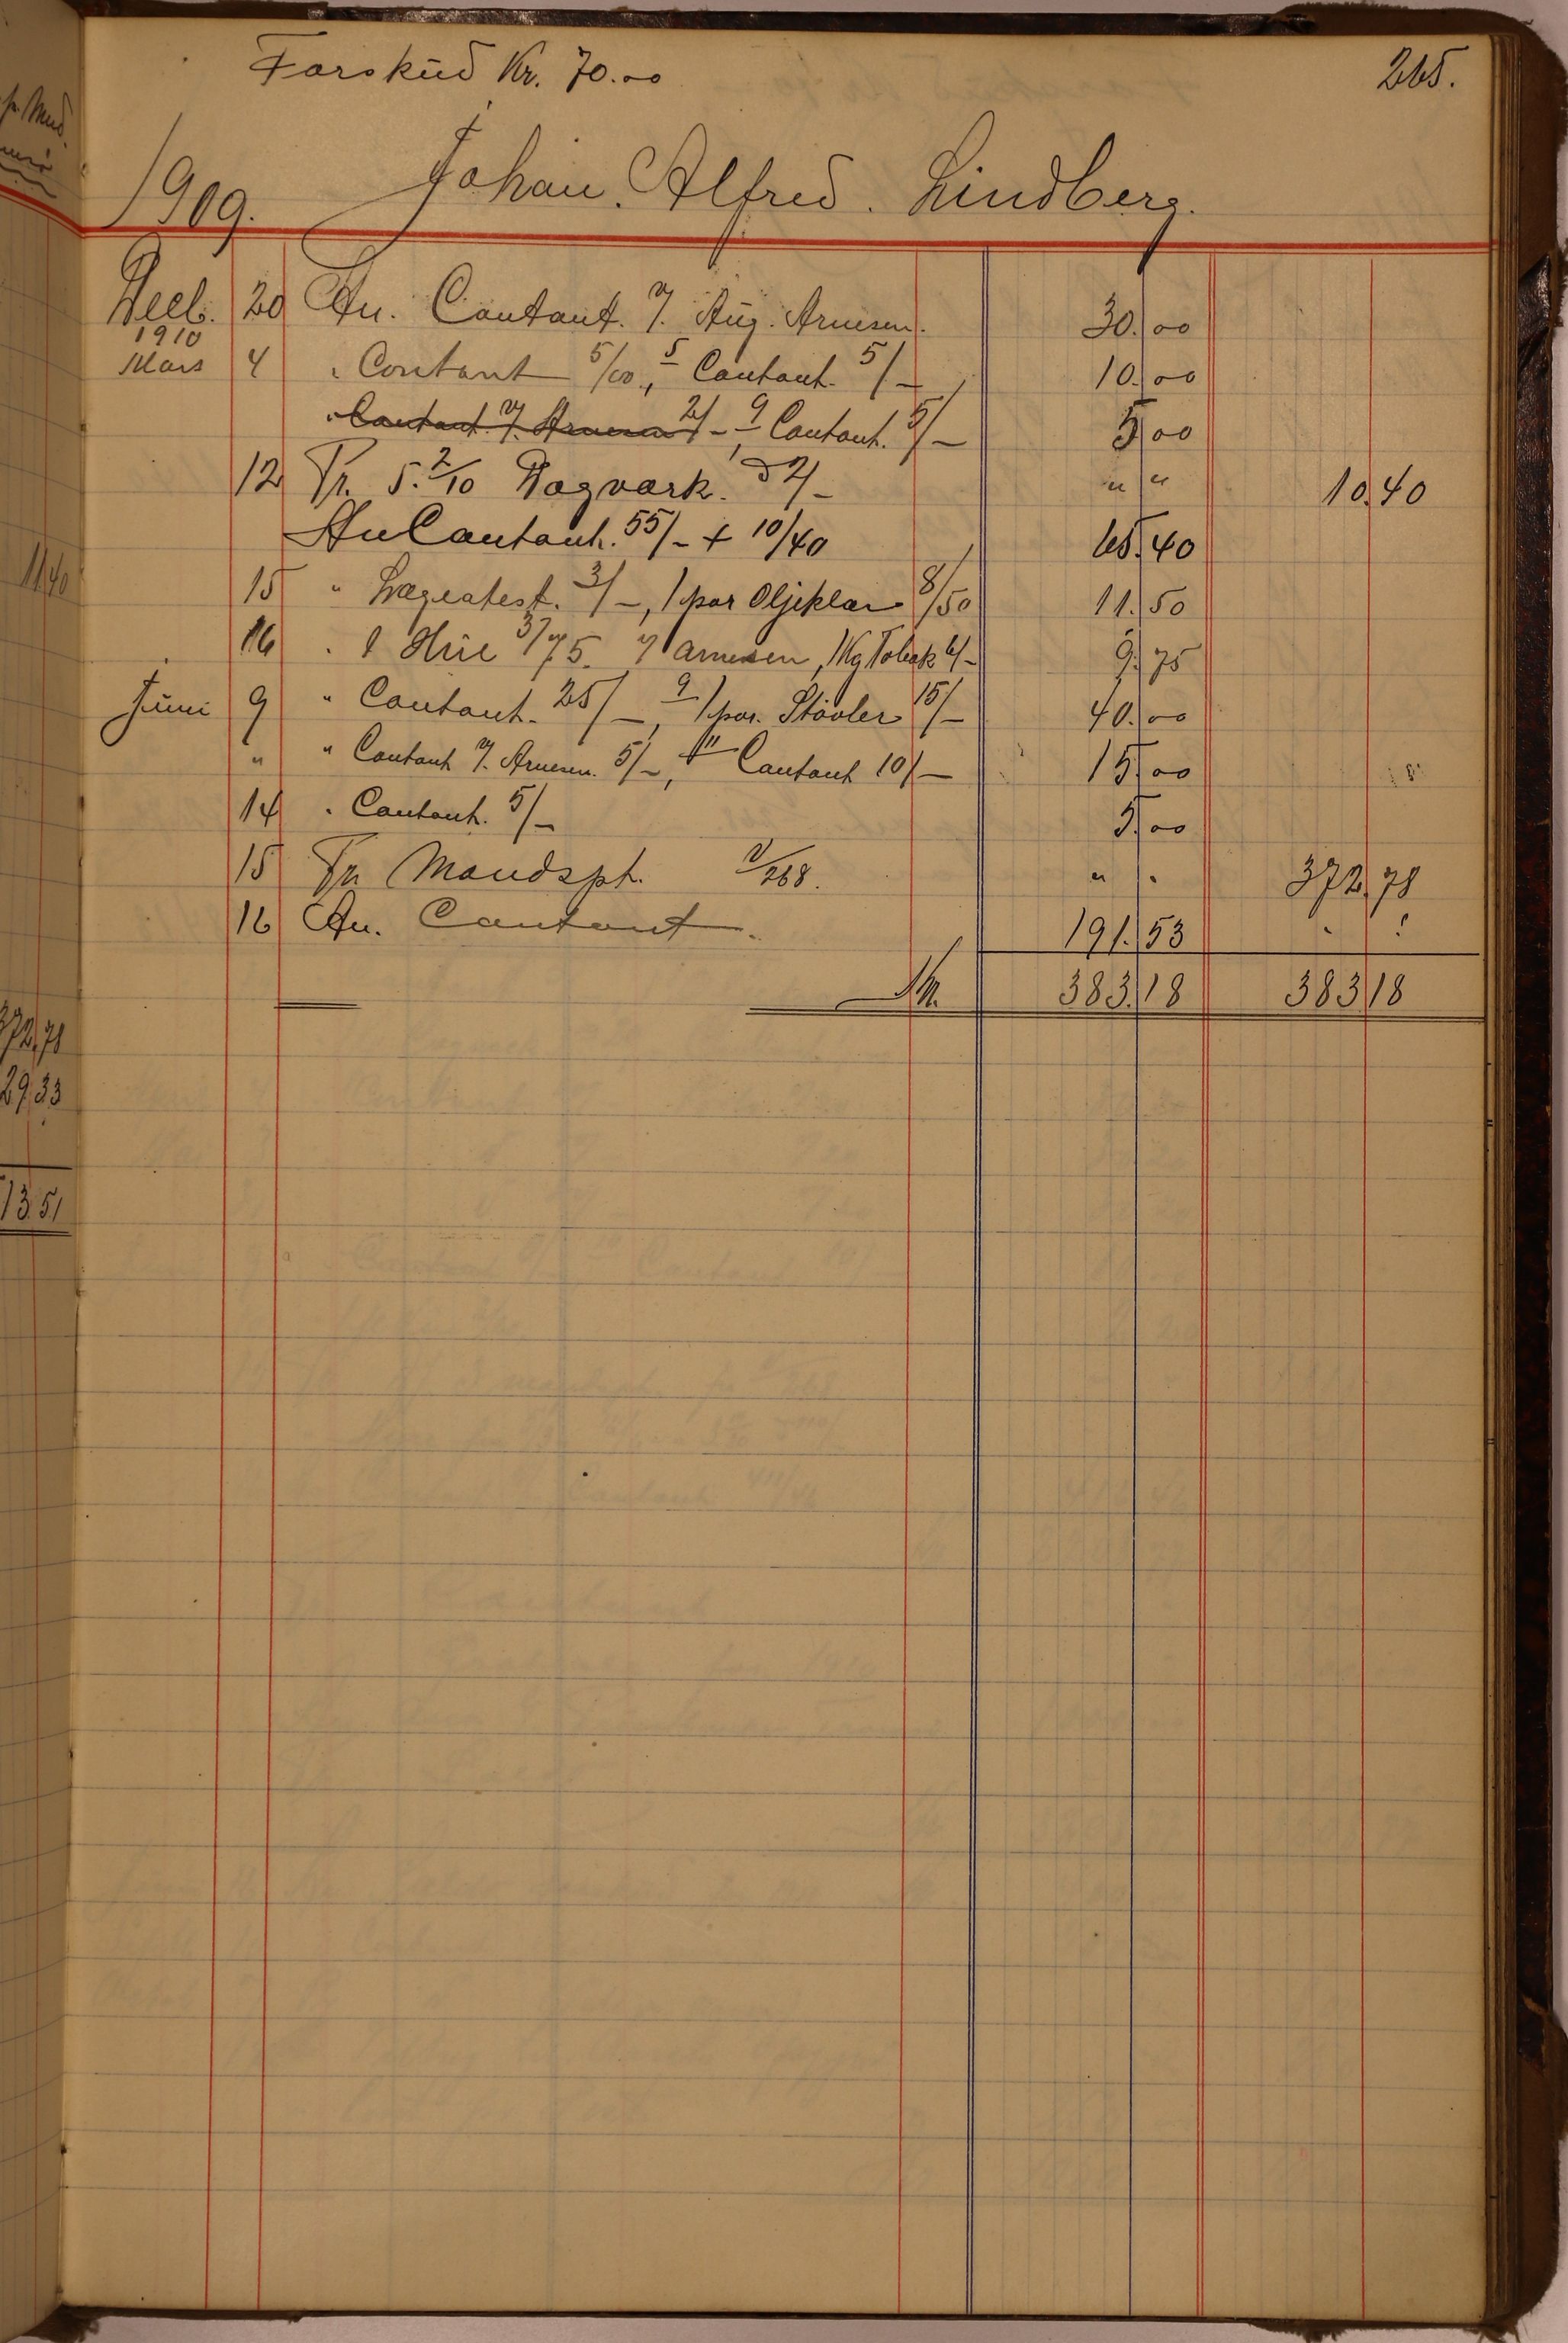 Forskud Kr. 70.00 265.
1909. Johan. Alfred. Lindberg.
Decb. 20 An. Contant. v/. Aug. Arnesen. 30.00
1910
Mars 4 " Contant 5/00, 5 Contant. 5/- 10.00
" Contant. v/. Arnesen 2/- 9 Contant. 5/- 5 00
12 Pr. 5.2/10 Dagverk. à 2/- " " 10.40
An Contant. 55/- + 10/40 65.40
15 " Lægeatest. 3/-, 1 par Oljeklær 8/50 11.50
16 " 1 Hue 3/75. v/ Arnesen, 1 Kg Tobak 6/- 9.75
Juni 9 " Contant. 25/-, 9 1 par. Støvler 15/- 40.00
" " Contant v/. Arnesen. 5/-, 11 Contant 10/- 15.00
14 " Contant. 5/- 5.00
15 Pr Mandspt. v/268. " " 372.78
16 An. Contant. 191.53 " "
Kr. 383.18 383 18
11 40
372,78
29 33
13.51